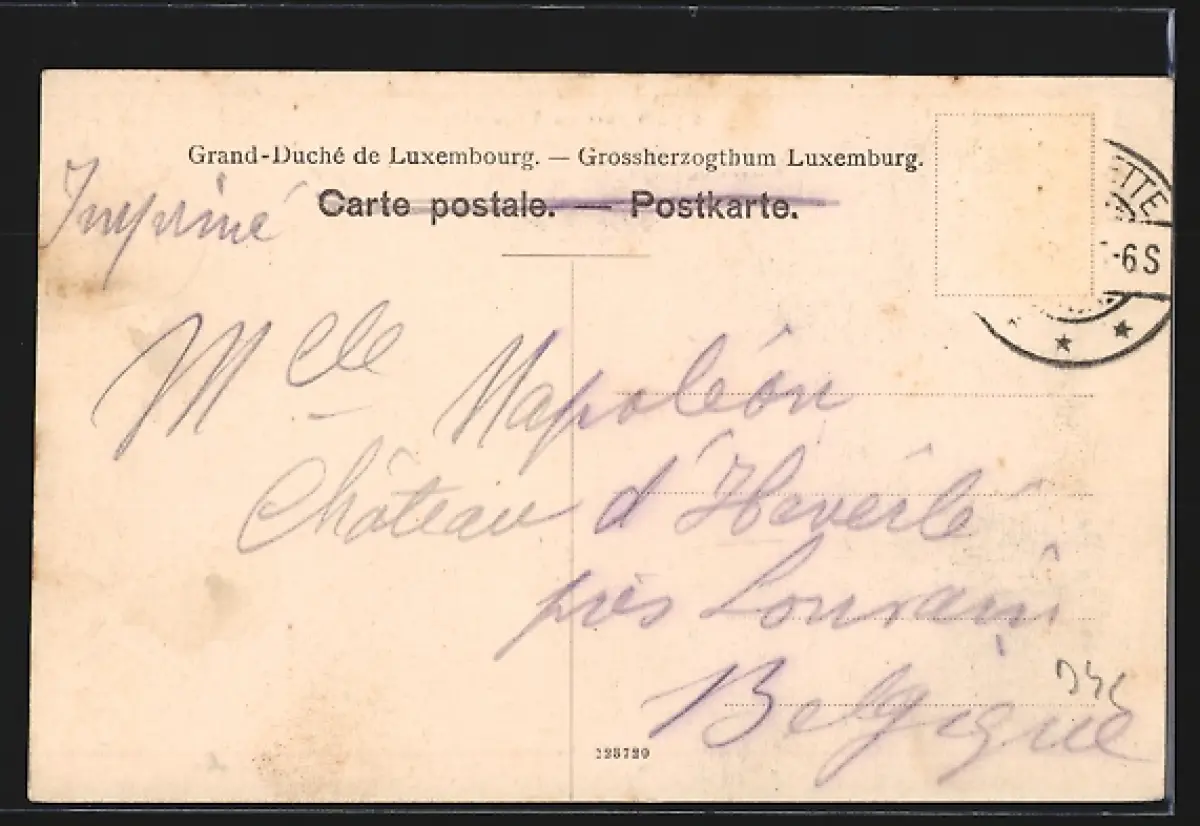 Grand-Duché de Luxembourg. — Grossherzogthum Luxemburg.
Carte postale. — Postkarte.
Imprimé
ETTE
-6S
Mlle Napoléon
Château d'Héverlé
près Louvain
Belgique